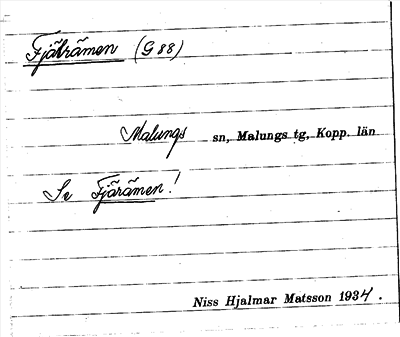 Fjätrãmen (G 88)
Malungs sn, Malungs tg, Kopp. län
Se Fjãrãmen!
Niss Hjalmar Matsson 1934.